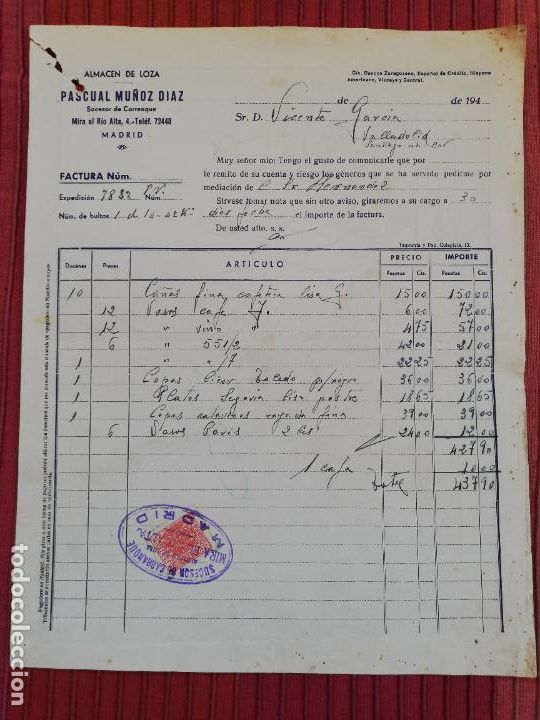 ALMACEN DE LOZA
PASCUAL MUÑOZ DIAZ
Sucesor de Carranque
Mira el Río Alta, 4.-Teléf. 72448
MADRID
C/c. Bancos Zaragozano, Español de Crédito, Hispano
Americano, Vizcaya y Central.
de de 194
Sr. D. Vicente Garcia
Valladolid
FACTURA Núm.
Expedición 7832 P.V. Núm.
Núm. de bultos 1 d
Muy señor mío: Tengo el gusto de comunicarle que por
le remito de su cuenta y riesgo los géneros que se ha servido pedirme por
mediación de Hernandez
Sírvase tomar nota que sin otro aviso, giraremos a su cargo a 30
dias fecha el importe de la factura.
De usted atto. s. s.
Imprenta y Pap. Colegiata, 12.
Docenas Piezas ARTICULO PRECIO IMPORTE
Pesetas Cts. Pesetas Cts.
10 Cañas fina lisa 15 00 150 00
12 Vasos cafe 6 00 72 00
12 " vino " 4 75 57 00
6 " 551/2 42 00 21 00
1 " "/7 22 25 22 25
1 Copas licor Toledo 36 00 36 00
1 Platos Segovia lisa postre 18 65 18 65
1 Copas fina 39 00 39 00
6 Vasos Paris 2 24 00 12 00
427 90
1 caja 10 00
437 90
SUCESOR DE CARRANQUE
MIRA EL RIO ALTA
MADRID
todocoleccion